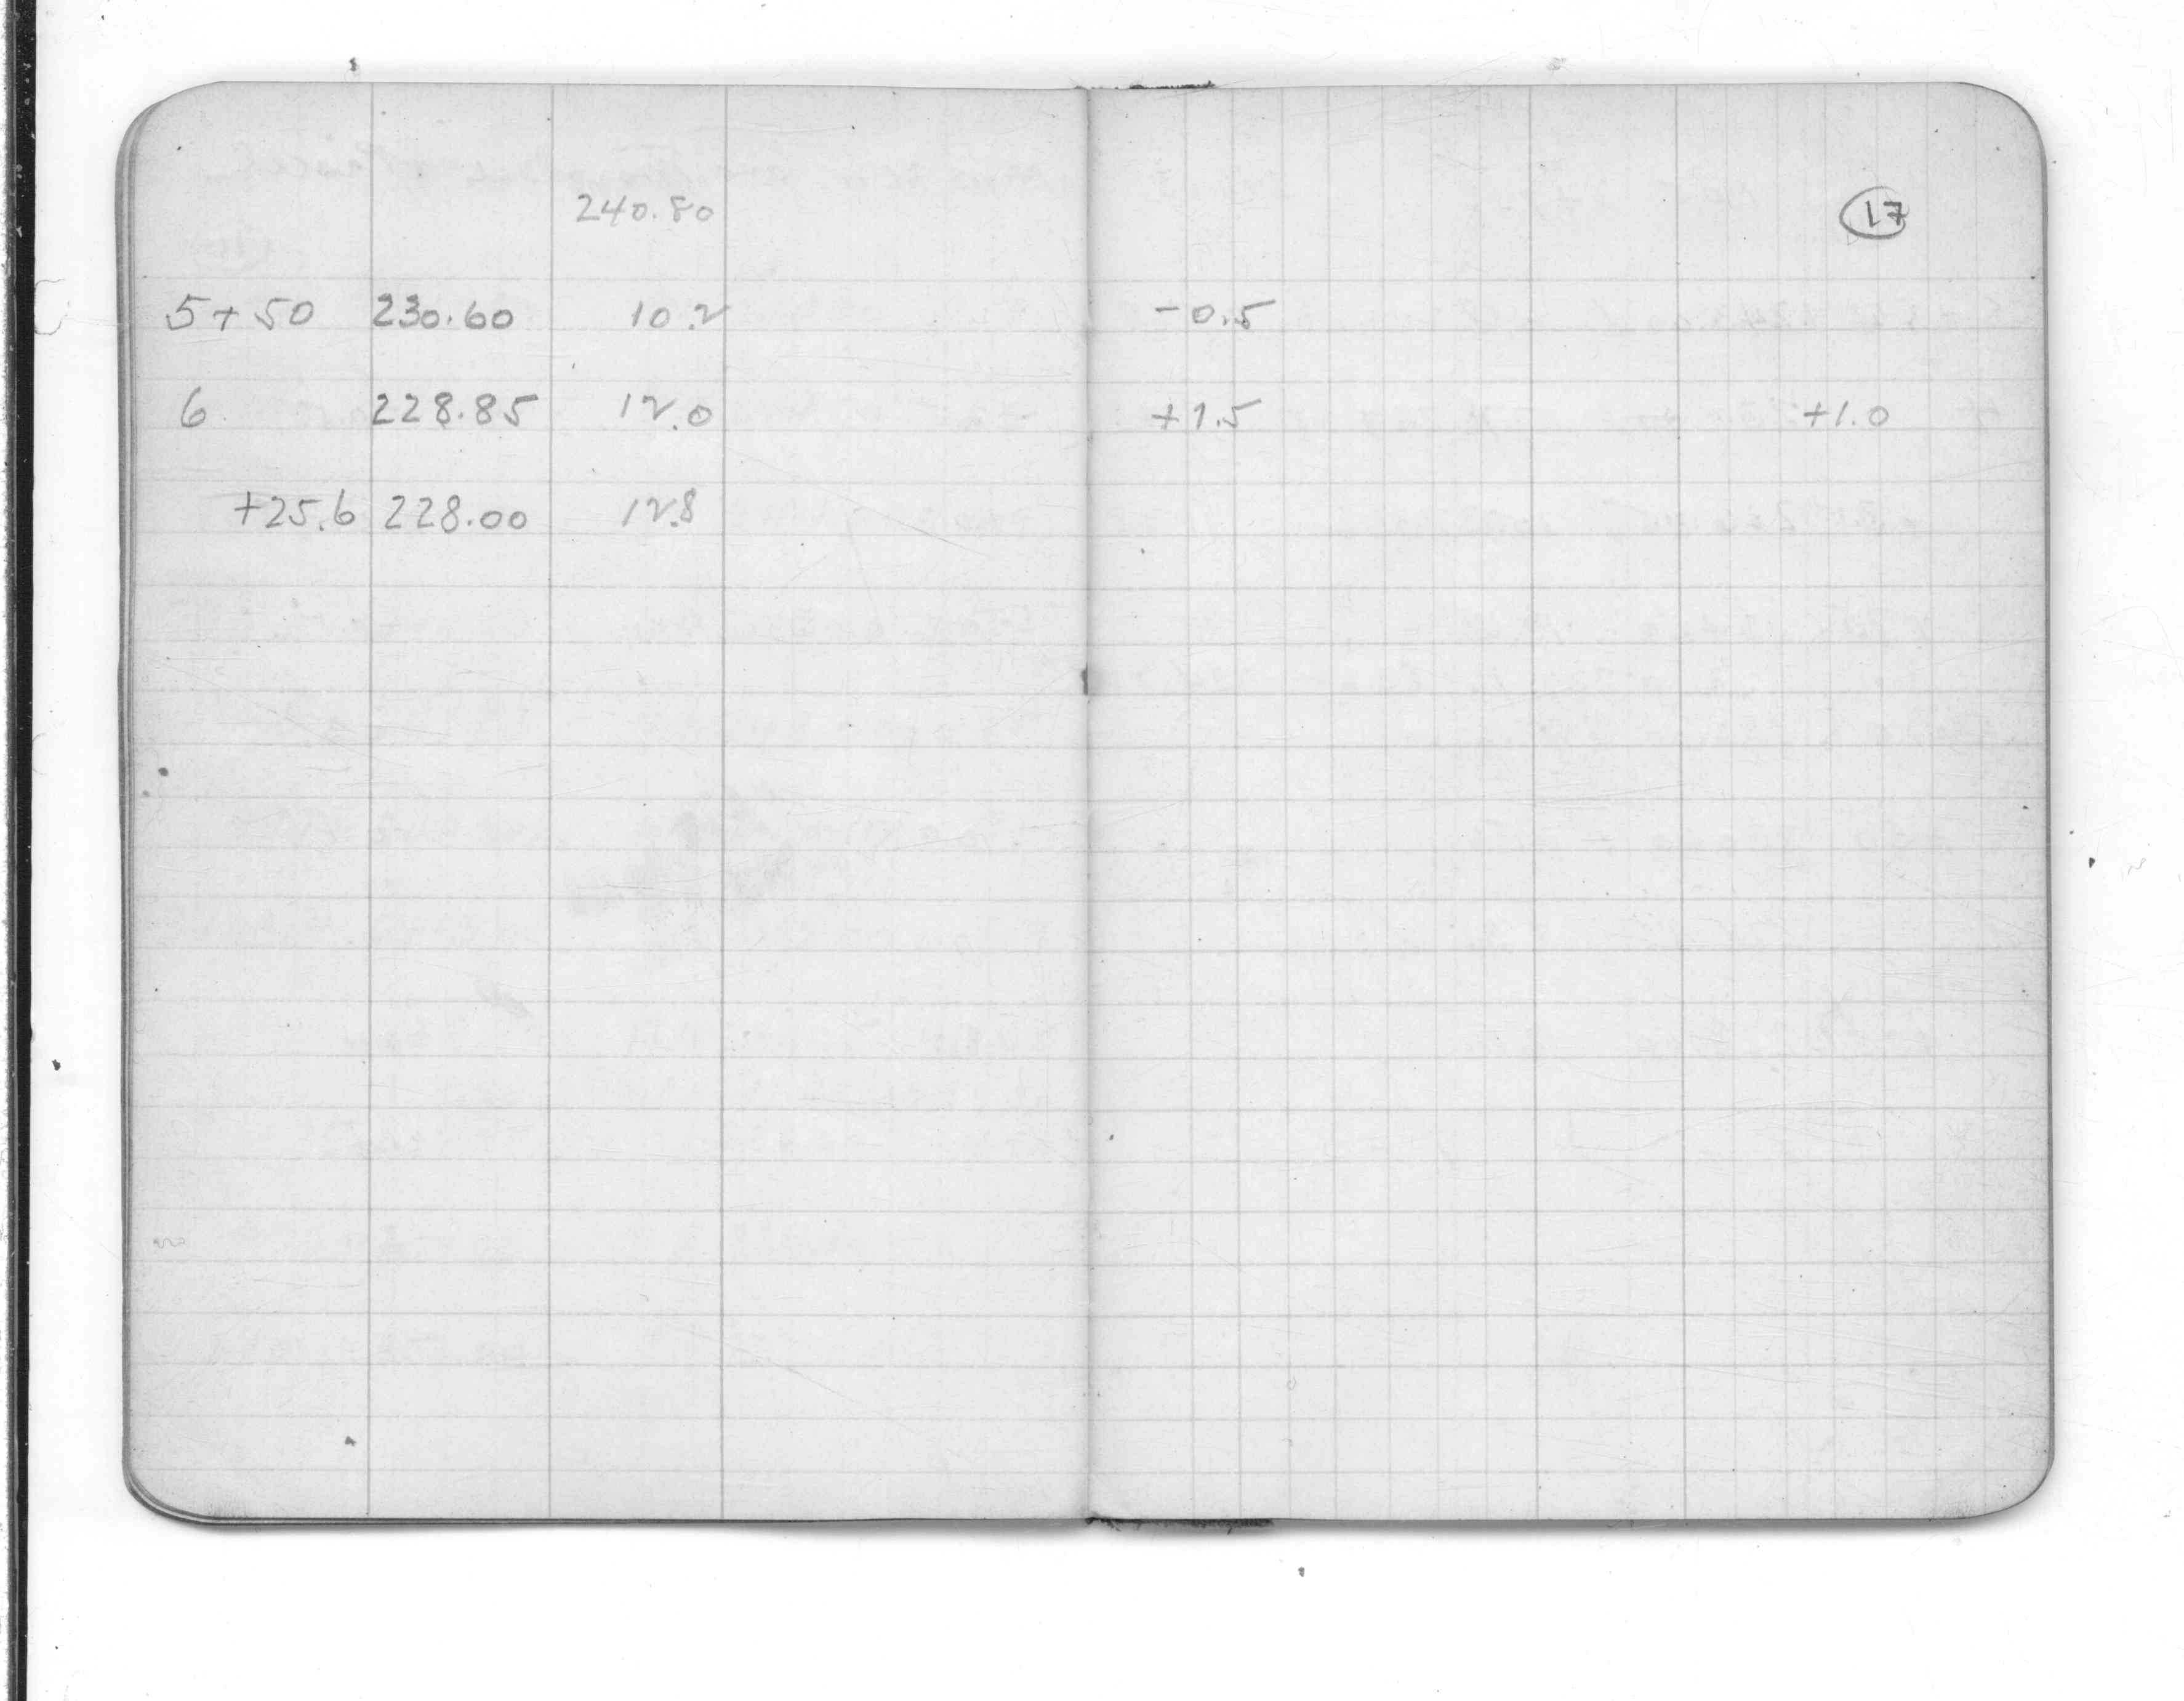 240.80
17
5+50 230.60 10.2 -0.5
6 228.85 12.0 +1.5 +1.0
+25.6 228.00 12.8